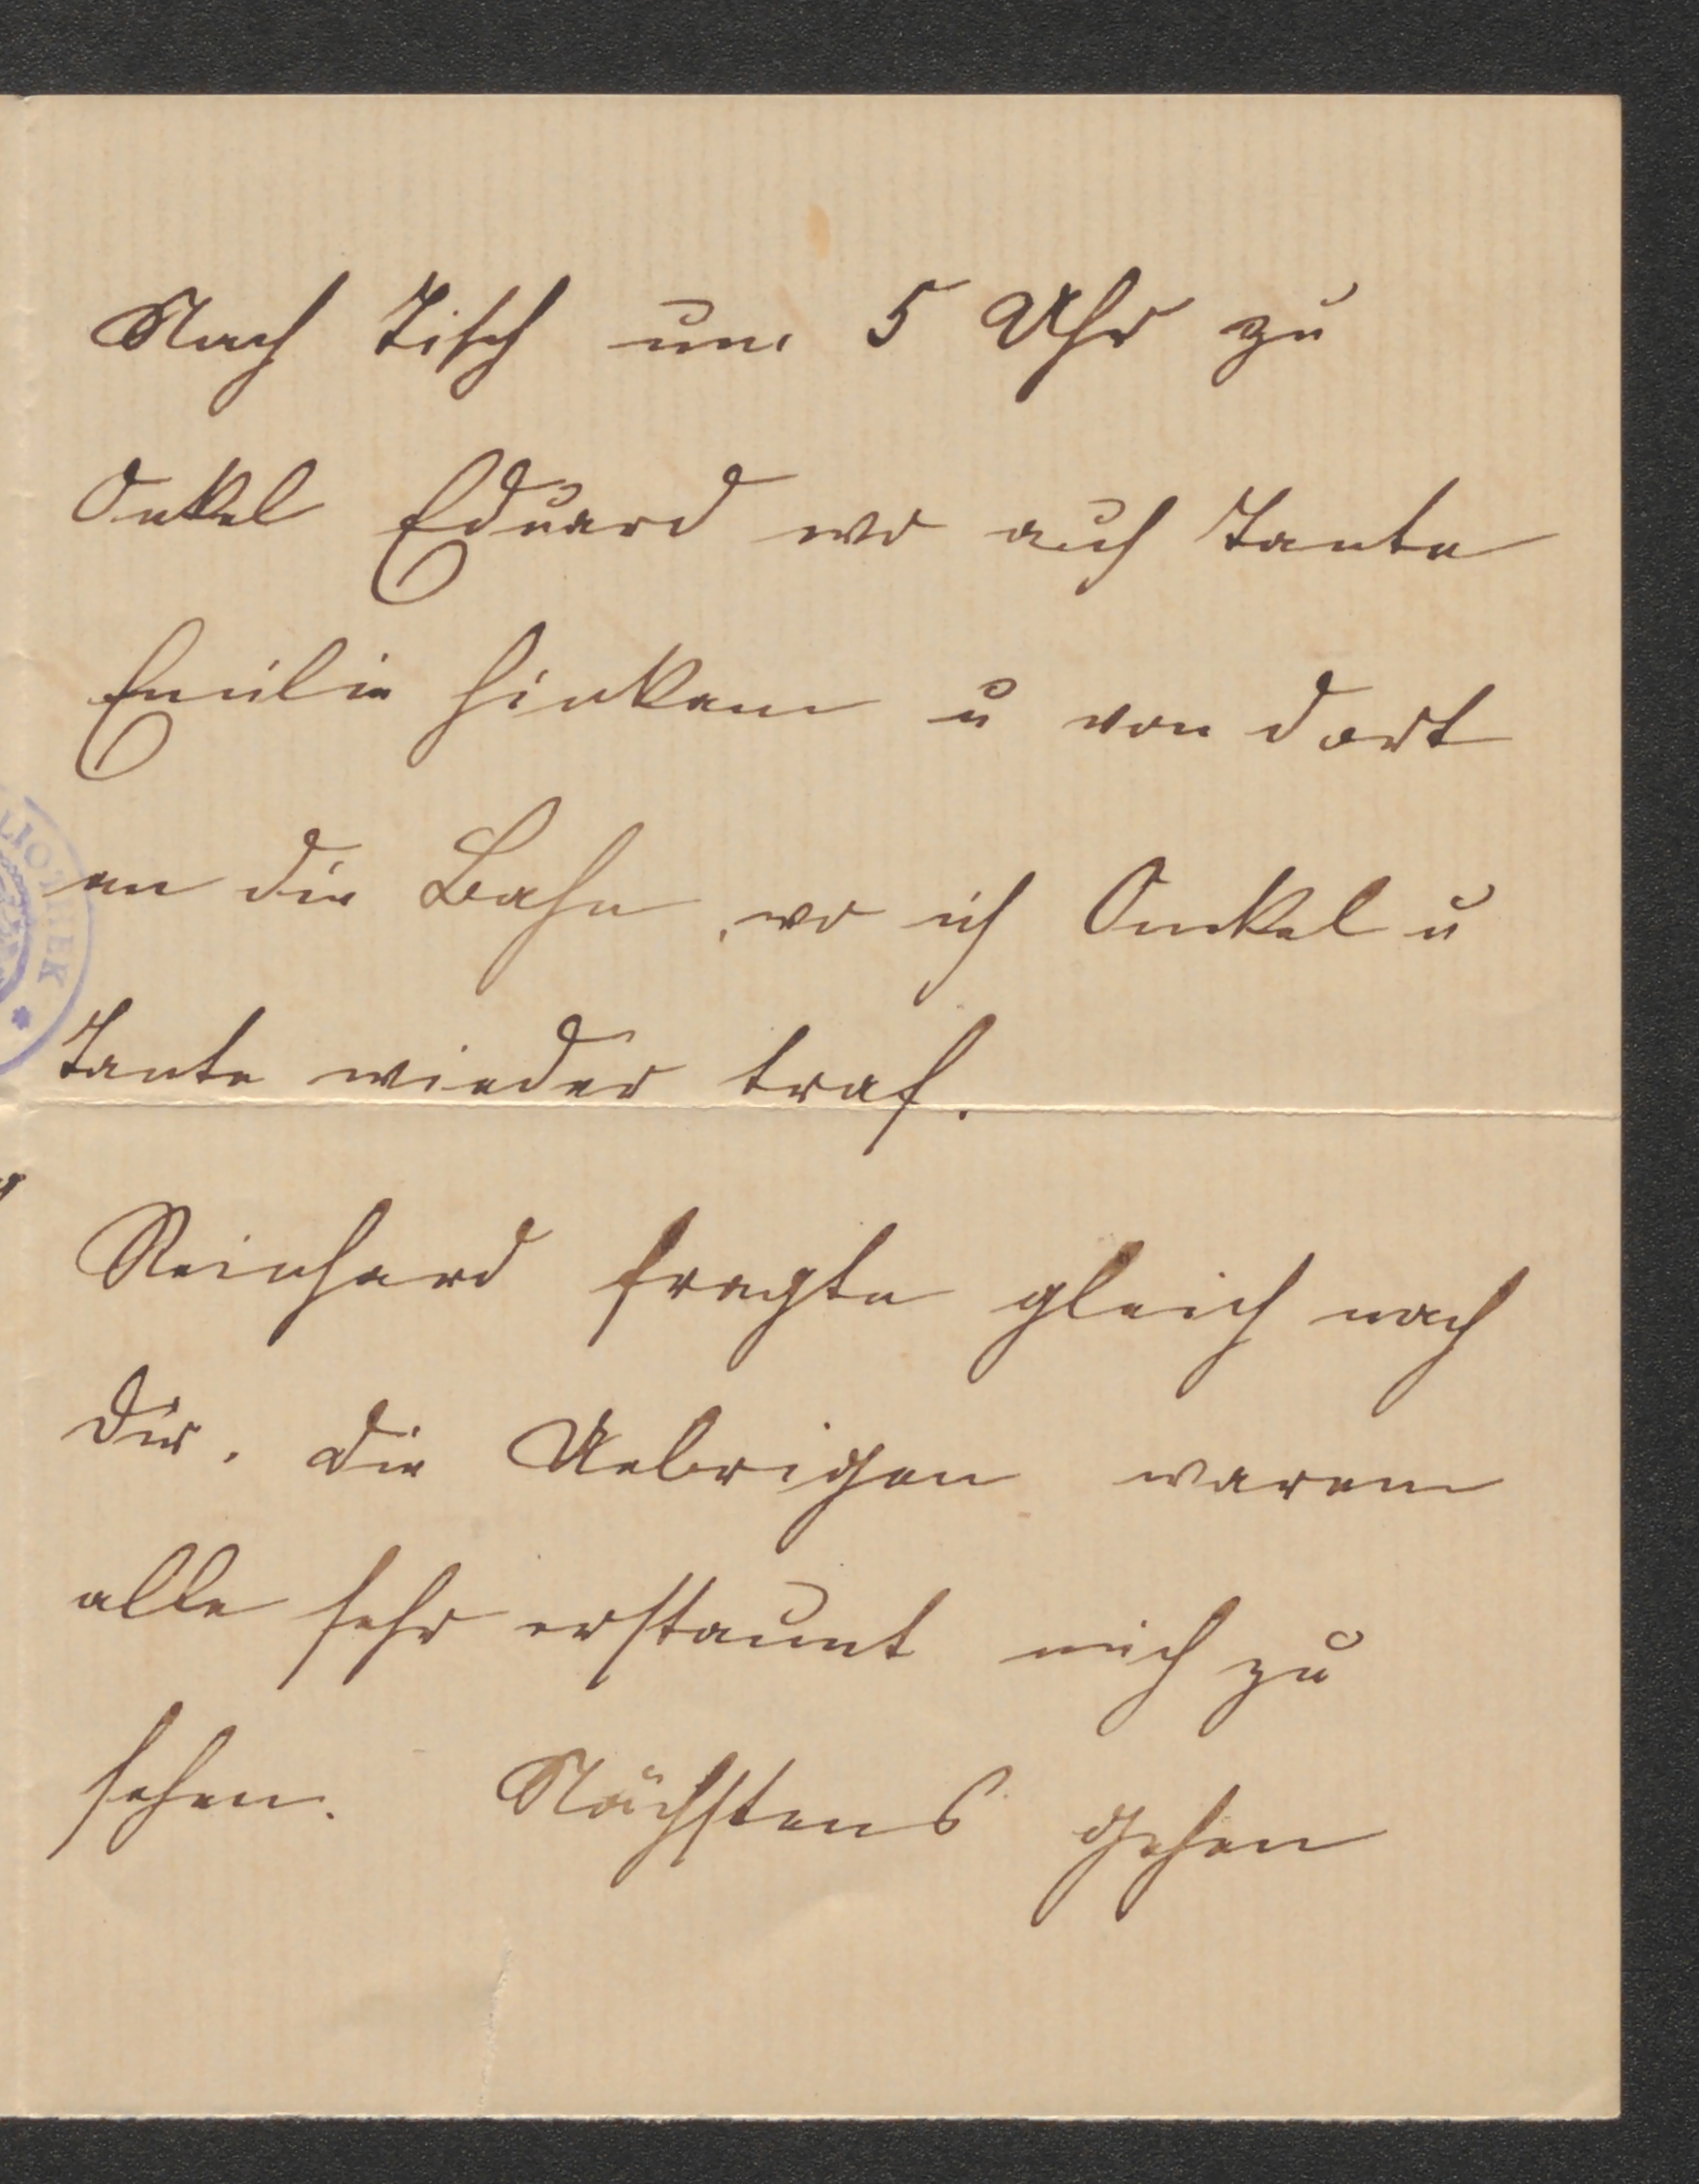 Nach Tisch um 5 Uhr zu
Onkel Eduard wo auch Tante
Emilie hinkam u von dort
an die Bahn, wo ich Onkel u
Tante wieder traf.
Reinhard fragte gleich nach
Dir. Die Uebrigen waren
alle sehr erstaunt mich zu
sehen. Nächstens gehen